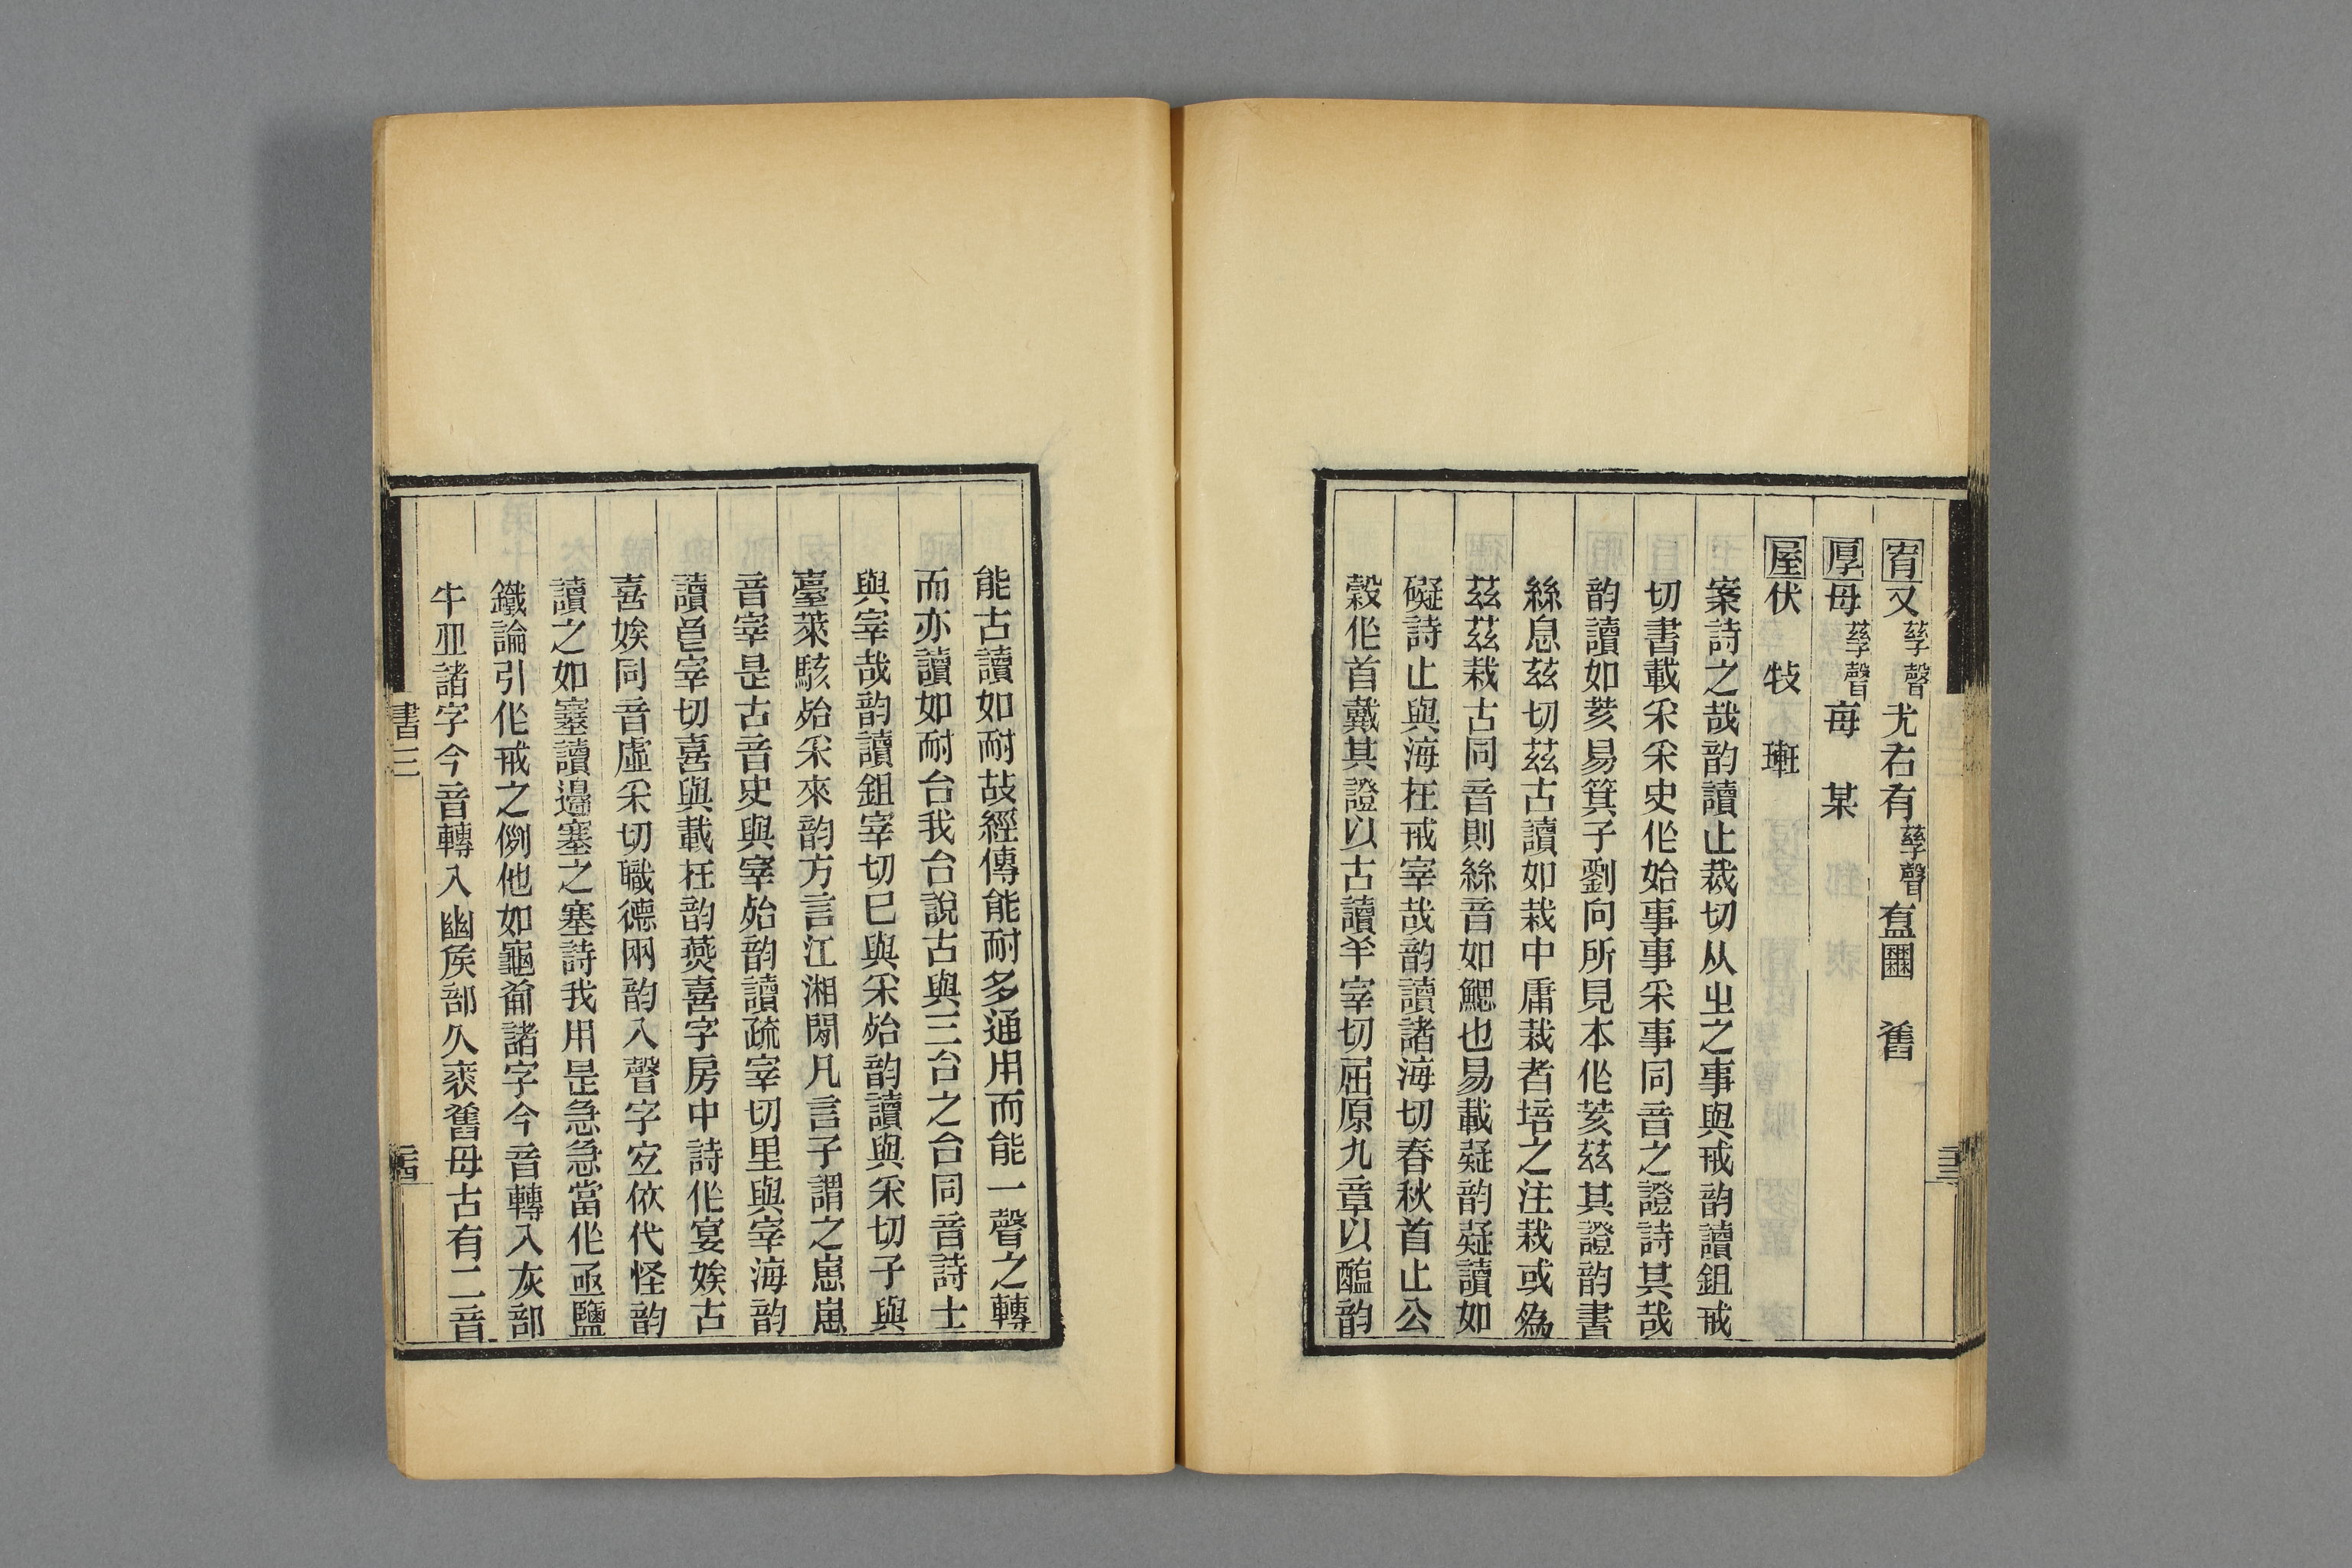 宥又孳聲尤右有孳聲盇㘝舊
厚母孳聲每某
屋伏牧㻌
案詩之哉韵讀止裁切从㞢之事與戒韵讀鉏戒
切書載采采史作始事事采事同音之證詩其哉
韵讀如荄易箕子劉向所見本作荄茲其證韵書
絲息茲切茲古讀如栽中庸栽者培之注栽或為
茲茲栽古同音則絲音如鰓也易載疑韵疑讀如
礙詩止與海在戒宰哉韵讀諸海切春秋首止公
穀作首戴其證以古讀羊宰切屈原九章以醢韵
能古讀如耐故經傳能耐多通用而能一聲之轉
而亦讀如耐台我台說古與三台之台同音詩士
與宰哉韵讀鉏宰切巳與采殆韵讀與采切子與
臺萊駭殆采來韵方言江湘閒凡言子謂之崽崽
音宰是古音史與宰殆韵讀疏宰切里與宰海韵
讀邑宰切喜與載在韵燕喜字房中詩作宴娭古
喜娭同音虛采切職德兩韵入聲字宜依代怪韵
讀之如塞讀邊塞之塞詩我用是急急當作亟鹽
鐵論引作戒之例他如龜葡諸字今音轉入灰部
牛丠諸字今音轉入幽矦部久裘舊母古有二音
書三